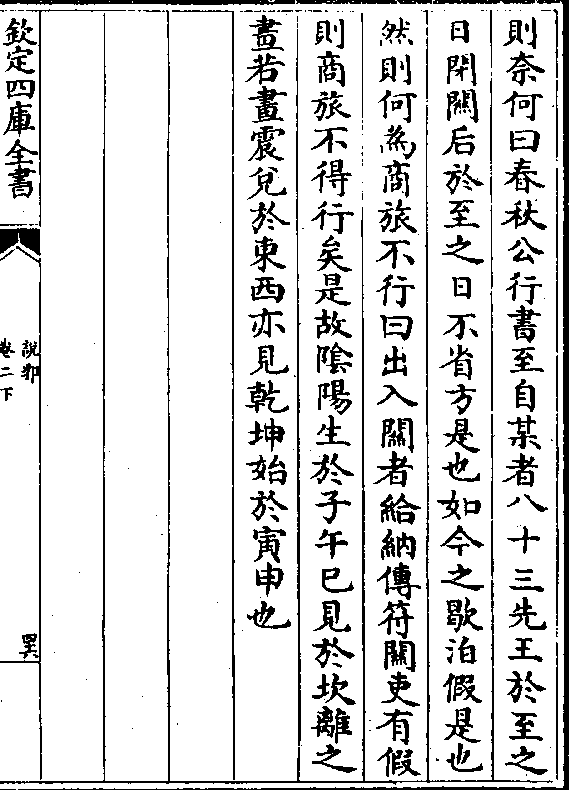 則奈何曰春秋公行書至自某者八十三先王於至之
日閉關后於至之日不省方是也如今之歇泊假是也
然則何為商旅不行曰出入關者給納傳符關吏有假
則商旅不得行矣是故陰陽生於子午已見於坎離之
畫若畫震兌於東西亦見乾坤始於寅申也
欽定四庫全書
說郛
卷二下